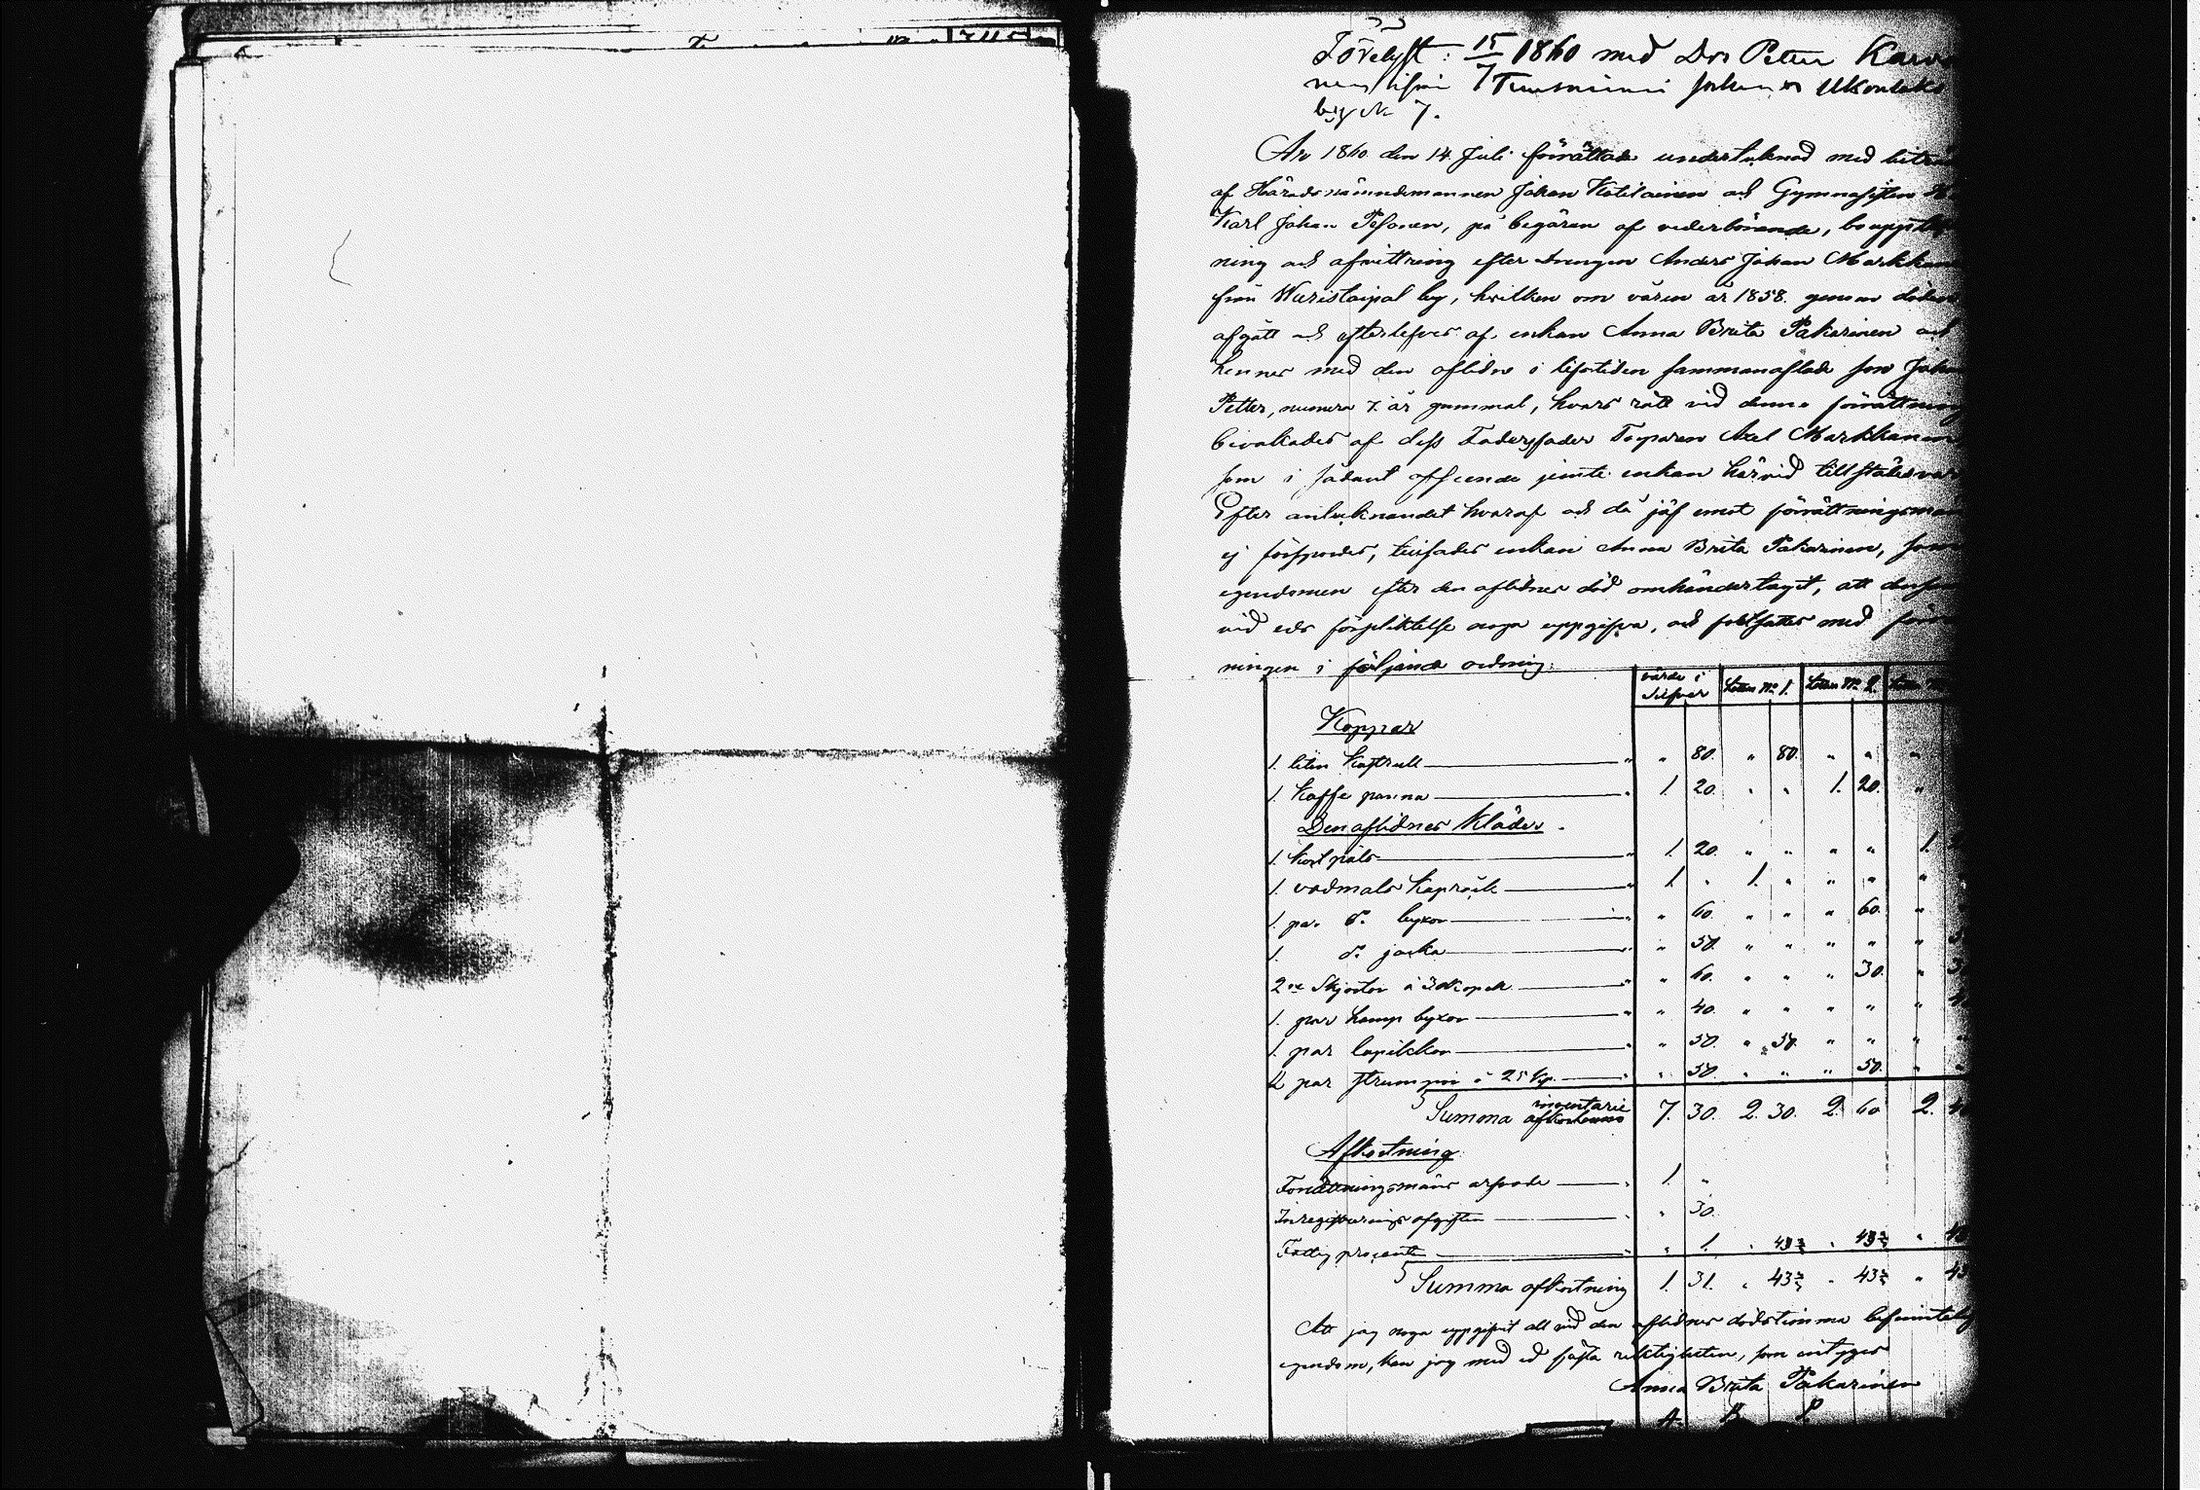 Förelyst: 15/7 1860 med Drs Petter
by № 7.
År 1860 den 14 Juli förrättade undertecknad med biträde
af Häradsnämndemannen Johan Kotilainen och Gymnasisten
Karl Johan Pesonen, på begäran af vederbörande, boupptek
ning och afwittring efter drengen Anders Johan Markkan
från Waristaipal by, hvilken om våren år 1858. genom döden
afgått och efterlefves af enkan Anna Brita Pakarinen och
hennes med den aflidne i lifstiden sammanaflade son Johan
Petter, numera 7. år gammal, hvars rätt vid denna förrättning
bevakades af dess Faderfader Torparen Axel Markkanen
som i sådant afseende jemte enkan härvid tillstädes var
Efter antecknandet hvaraf och då jäf emot förrättningsman
ej förspordes, tillsades enkan Anna Brita Pakarinen, som
egendomen efter den aflidnes död omhändertagit, att den
vid eds förpliktelse noga uppgifva, och fortsattes med förrätt
ningen i följande ordning:
värde i Silfver Lotten No 1. Lotten No 2.
Koppar
1. liten Kastrull " 80. " 80. " " "
1. Kaffe panna 1. 20. " " 1. 20. "
Den aflidnes Kläder.
1. Kort päls 1. 20. " " " " 1.
1. vadmals Kaprock 1. " 1. " " " "
1. par do byxor " 60. " " " 60. "
1. do jacka " 50. " " " " "
2ne Skjortor à 30 Kopek " 60. " " " 30. "
1. par hamp byxor " 40. " " " " "
1. par lapikkor " 50. " 50. " " "
2 par strumpor à 25 Kp. " 50. " " " 50. "
Summa inventarie 7. 30. 2. 30. 2. 60 2.
Afkortning
Förrättningsmäns arfvode 1. "
Inregistrerings afgiften " 30.
Fattig procenten " 1. " 43 2/3 " 43 2/3 "
Summa afkortning 1. 31. " 43 2/3 " 43 2/3 "
Att jag noga uppgifvit all vid den aflidnes dödstimma befintelig
egendom, kan jag med ed fästa riktigheten, som intygas
Anna Brita Pakarinen
A. B. P.